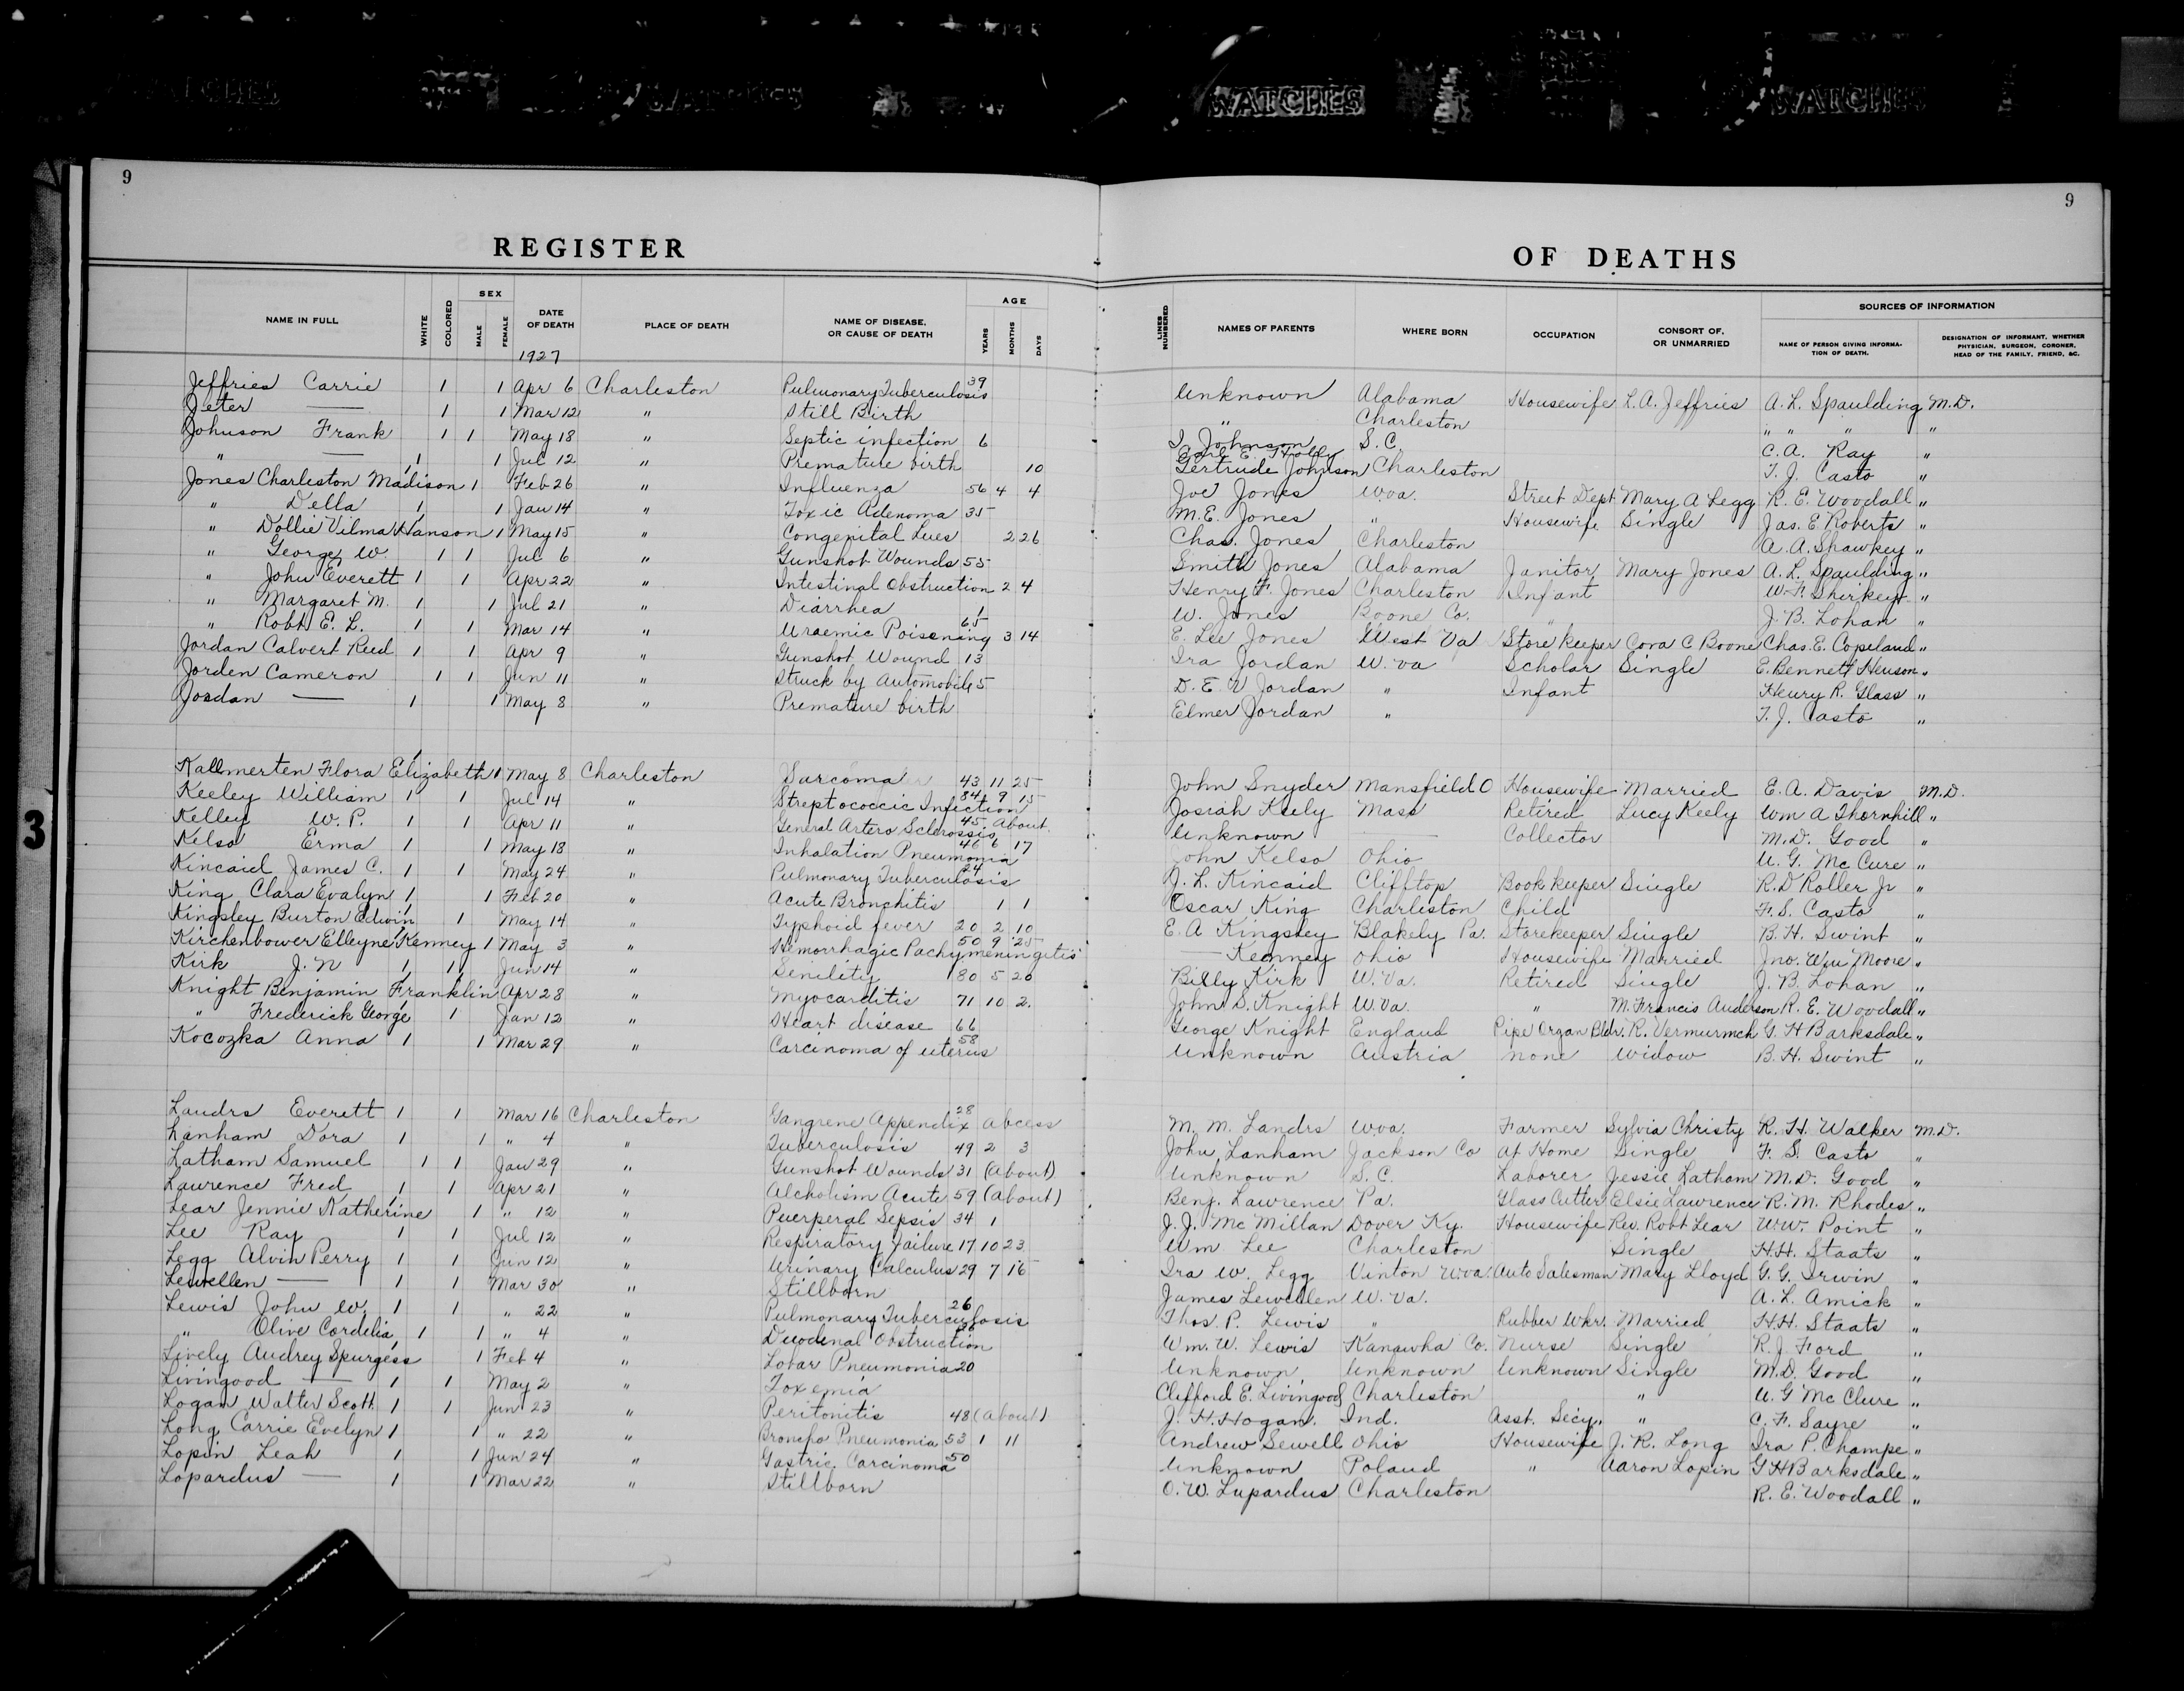 WATCHES WATCHES WATCHES WATCHES
9 9
REGISTER OF DEATHS
NAME IN FULL WHITE COLORED SEX MALE FEMALE DATE OF DEATH PLACE OF DEATH NAME OF DISEASE, OR CAUSE OF DEATH AGE YEARS MONTHS DAYS LINES NUMBERED NAMES OF PARENTS WHERE BORN OCCUPATION CONSORT OF, OR UNMARRIED SOURCES OF INFORMATION NAME OF PERSON GIVING INFORMATION OF DEATH. DESIGNATION OF INFORMANT, WHETHER PHYSICIAN, SURGEON, CORONER, HEAD OF THE FAMILY, FRIEND, &C.
1927
Jeffries Carrie 1 1 Apr 6 Charleston Pulmonary Tuberculosis 39 Unknown Alabama Housewife L.A. Jeffries A. L. Spaulding M.D.
Jeter — 1 1 Mar 12 " Still Birth " Charleston " " " "
Johnson Frank 1 1 May 18 " Septic infection 6 I. Johnson S.C. C.A. Ray "
" — 1 1 Jul 12 " Premature birth 10 Earl E. Holly Gertrude Johnson Charleston T. J. Casto "
Jones Charleston Madison 1 1 Feb 26 " Influenza 56 4 4 Joe Jones W.va. Street Dept. Mary A Legg R. E. Woodall "
" Della 1 1 Jan 14 " Toxic Adenoma 35 M.E. Jones " Housewife Single Jas. E. Roberts "
" Dollie Vilma Hanson 1 1 May 15 " Congenital Lues 2 26 Chas. Jones Charleston A. A. Shawkey "
" George W. 1 1 Jul 6 " Gunshot Wounds 55 Smith Jones Alabama Janitor Mary Jones A. L. Spaulding "
" John Everett 1 1 Apr 22 " Intestinal Obstruction 2 4 Henry F. Jones Charleston Infant W. F. Shirkey "
" Margaret M. 1 1 Jul 21 " Diarrhea 1 W. Jones Boone Co. " J. B. Lohan "
" Robt. E. L. 1 1 Mar 14 " Uraemic Poisening 65 3 14 E. Lee Jones West Va Store keeper Cora C Boone Chas. E. Copeland "
Jordan Calvert Reed 1 1 Apr 9 " Gunshot Wound 13 Ira Jordan W. va Scholar Single E. Bennett Henson "
Jorden Cameron 1 1 Jun 11 " Struck by Automobile 5 D. E. V Jordan " Infant Henry R. Glass "
Jordan — 1 1 May 8 " Premature birth Elmer Jordan " T. J. Casto "
Kallmerten Flora Elizabeth 1 1 May 8 Charleston Sarcoma 43 11 25 John Snyder Mansfield O Housewife Married E. A. Davis M.D.
Keeley William 1 1 Jul 14 " Streptococcic Infection 84 9 15 Josiah Keely Mass Retired Lucy Keely Wm A Thornhill "
Kelley W. P. 1 1 Apr 11 " General Artero Sclerossis 45 About Unknown — Collector M.D. Good "
Kelso Erma 1 1 May 18 " Inhalation Pneumonia 46 6 17 John Kelso Ohio U. G. Mc Cure "
Kincaid James C. 1 1 May 24 " Pulmonary Tuberculosis 24 J. L. Kincaid Clifftop Book keeper Single R.D Roller Jr "
King Clara Evalyn 1 1 Feb 20 " Acute Bronchitis 1 1 Oscar King Charleston Child F. S. Casto "
Kingsley Burton Edwin 1 1 May 14 " Typhoid fever 20 2 10 E. A Kingsley Blakely Pa. Storekeeper Single B. H. Swint "
Kirchenbower Elleyne Kenney 1 1 May 3 " Hemorrhagic Pachymeningitis 50 9 25 — Kenney Ohio Housewife Married Jno. Wm Moore "
Kirk J. N 1 1 Jun 14 " Senility 80 5 20 Billy Kirk W. Va. Retired Single J. B. Lohan "
Knight Benjamin Franklin 1 Apr 28 " Myocarditis 71 10 2 John S. Knight W.Va. " M. Francis Anderson R. E. Woodall "
" Frederick George 1 1 Jan 12 " Heart disease 66 George Knight England Pipe Organ Bldr. R. Vermurmeh G. H Barksdale "
Kocozka Anna 1 1 Mar 29 " Carcinoma of uterus 58 Unknown Austria none Widow B. H. Swint "
Landrs Everett 1 1 Mar 16 Charleston Gangrene Appendix Abcess 28 M. M. Landrs W.va. Farmer Sylvia Christy R. H. Walker M.D.
Lanham Dora 1 1 " 4 " Tuberculosis 49 2 3 John Lanham Jackson Co At Home Single F. S. Casto "
Latham Samuel 1 1 Jan 29 " Gunshot Wounds 31 (About) Unknown S. C. Laborer Jessie Latham M.D. Good "
Lawrence Fred 1 1 Apr 21 " Alcholism Acute 59 (About) Benj. Lawrence Pa. Glass Cutter Elsie Lawrence R. M. Rhodes "
Lear Jennie Katherine 1 1 " 12 " Puerperal Sepsis 34 1 J. J. Mc Millan Dover Ky. Housewife Rev. Robt Lear W.W. Point "
Lee Ray 1 1 Jul 12 " Respiratory failure 17 10 23 Wm Lee Charleston Single H.H. Staats "
Legg Alvin Perry 1 1 Jun 12 " Urinary Calculus 29 7 15 Ira W. Legg Vinton W.va. Auto Salesman Mary Lloyd G. G. Irwin "
Lewellen — 1 1 Mar 30 " Stillborn James Lewellen W. Va. A. L. Amick "
Lewis John W. 1 1 " 22 " Pulmonary Tuberculosis 26 Thos. P. Lewis " Rubber Wkr. Married H.H. Staats "
" Olive Cordelia 1 1 " 4 " Duodenal Obstruction Wm. W. Lewis Kanawha Co. Nurse Single R. J. Ford "
Lively Audrey Spurgess 1 1 Feb 4 " Lobar Pneumonia 20 Unknown Unknown Unknown Single M.D. Good "
Livingood — 1 1 May 2 " Toxemia Clifford E. Livingood Charleston " U. G Mc Clure "
Logan Walter Scott 1 1 Jun 23 " Peritonitis 48 (About) J. H. Hogan. Ind. Asst. Secy. " C. F. Sayre "
Long Carrie Evelyn 1 1 " 22 " Broncho Pneumonia 53 1 11 Andrew Sewell Ohio Housewife J. R. Long Ira P. Champe "
Lopin Leah 1 1 Jun 24 " Gastric Carcinoma 50 Unknown Poland " Aaron Lopin G H Barksdale "
Lopardus — 1 1 Mar 22 " Stillborn O. W. Lupardus Charleston R. E. Woodall "
3